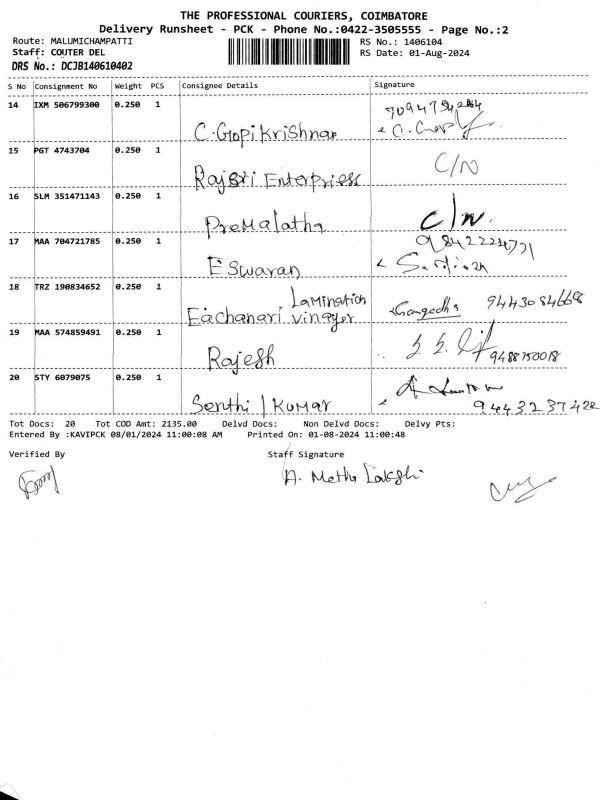 THE PROFESSIONAL COURIERS, COIMBATORE
Delivery Runsheet - PCK - Phone No.:0422-3505555 - Page No.:2
Route: MALUMICHAMPATTI RS No.: 1406104
Staff: COUTER DEL RS Date: 01-Aug-2024
DRS No.: DCJB140610402
S No Consignment No Weight PCS Consignee Details Signature
14 IXM 506799300 0.250 1
C.GopiKrishnan
15 PGT 4743704 0.250 1 C/N
Rajsri Enterprises
16 SLM 351471143 0.250 1 C/N.
Premalatha
17 MAA 704721785 0.250 1
Eswaran
18 TRZ 190834652 0.250 1 Lamination
Eachanari Vinayer 9443084668
19 MAA 574859491 0.250 1
Rajesh 9488750018
20 STY 6079075 0.250 1
Senthil Kumar
Tot Docs: 20 Tot COD Amt: 2135.00 Delvd Docs: Non Delvd Docs: Delvy Pts:
Entered By :KAVIPCK 08/01/2024 11:00:08 AM Printed On: 01-08-2024 11:00:48
Verified By Staff Signature